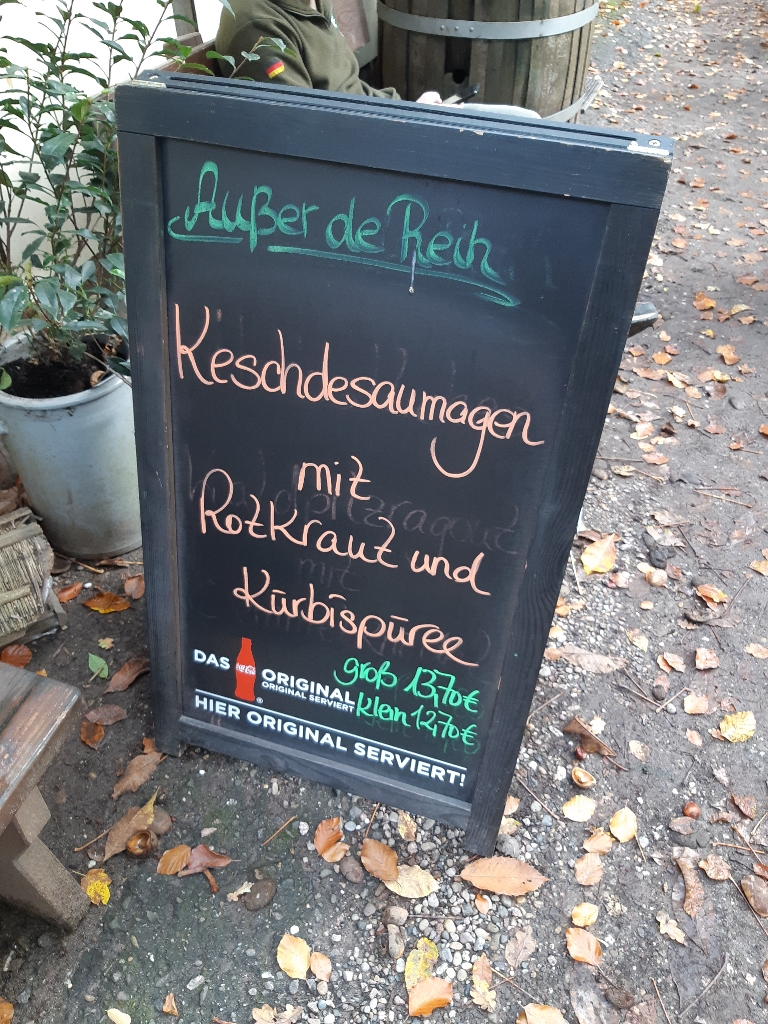 Außer de Reih
Keschdesaumagen
mit
Rotkraut und
Kürbispüree
groß 13,70€
klein 12,70€
DAS Coca-Cola ORIGINAL
ORIGINAL SERVIERT
HIER ORIGINAL SERVIERT!